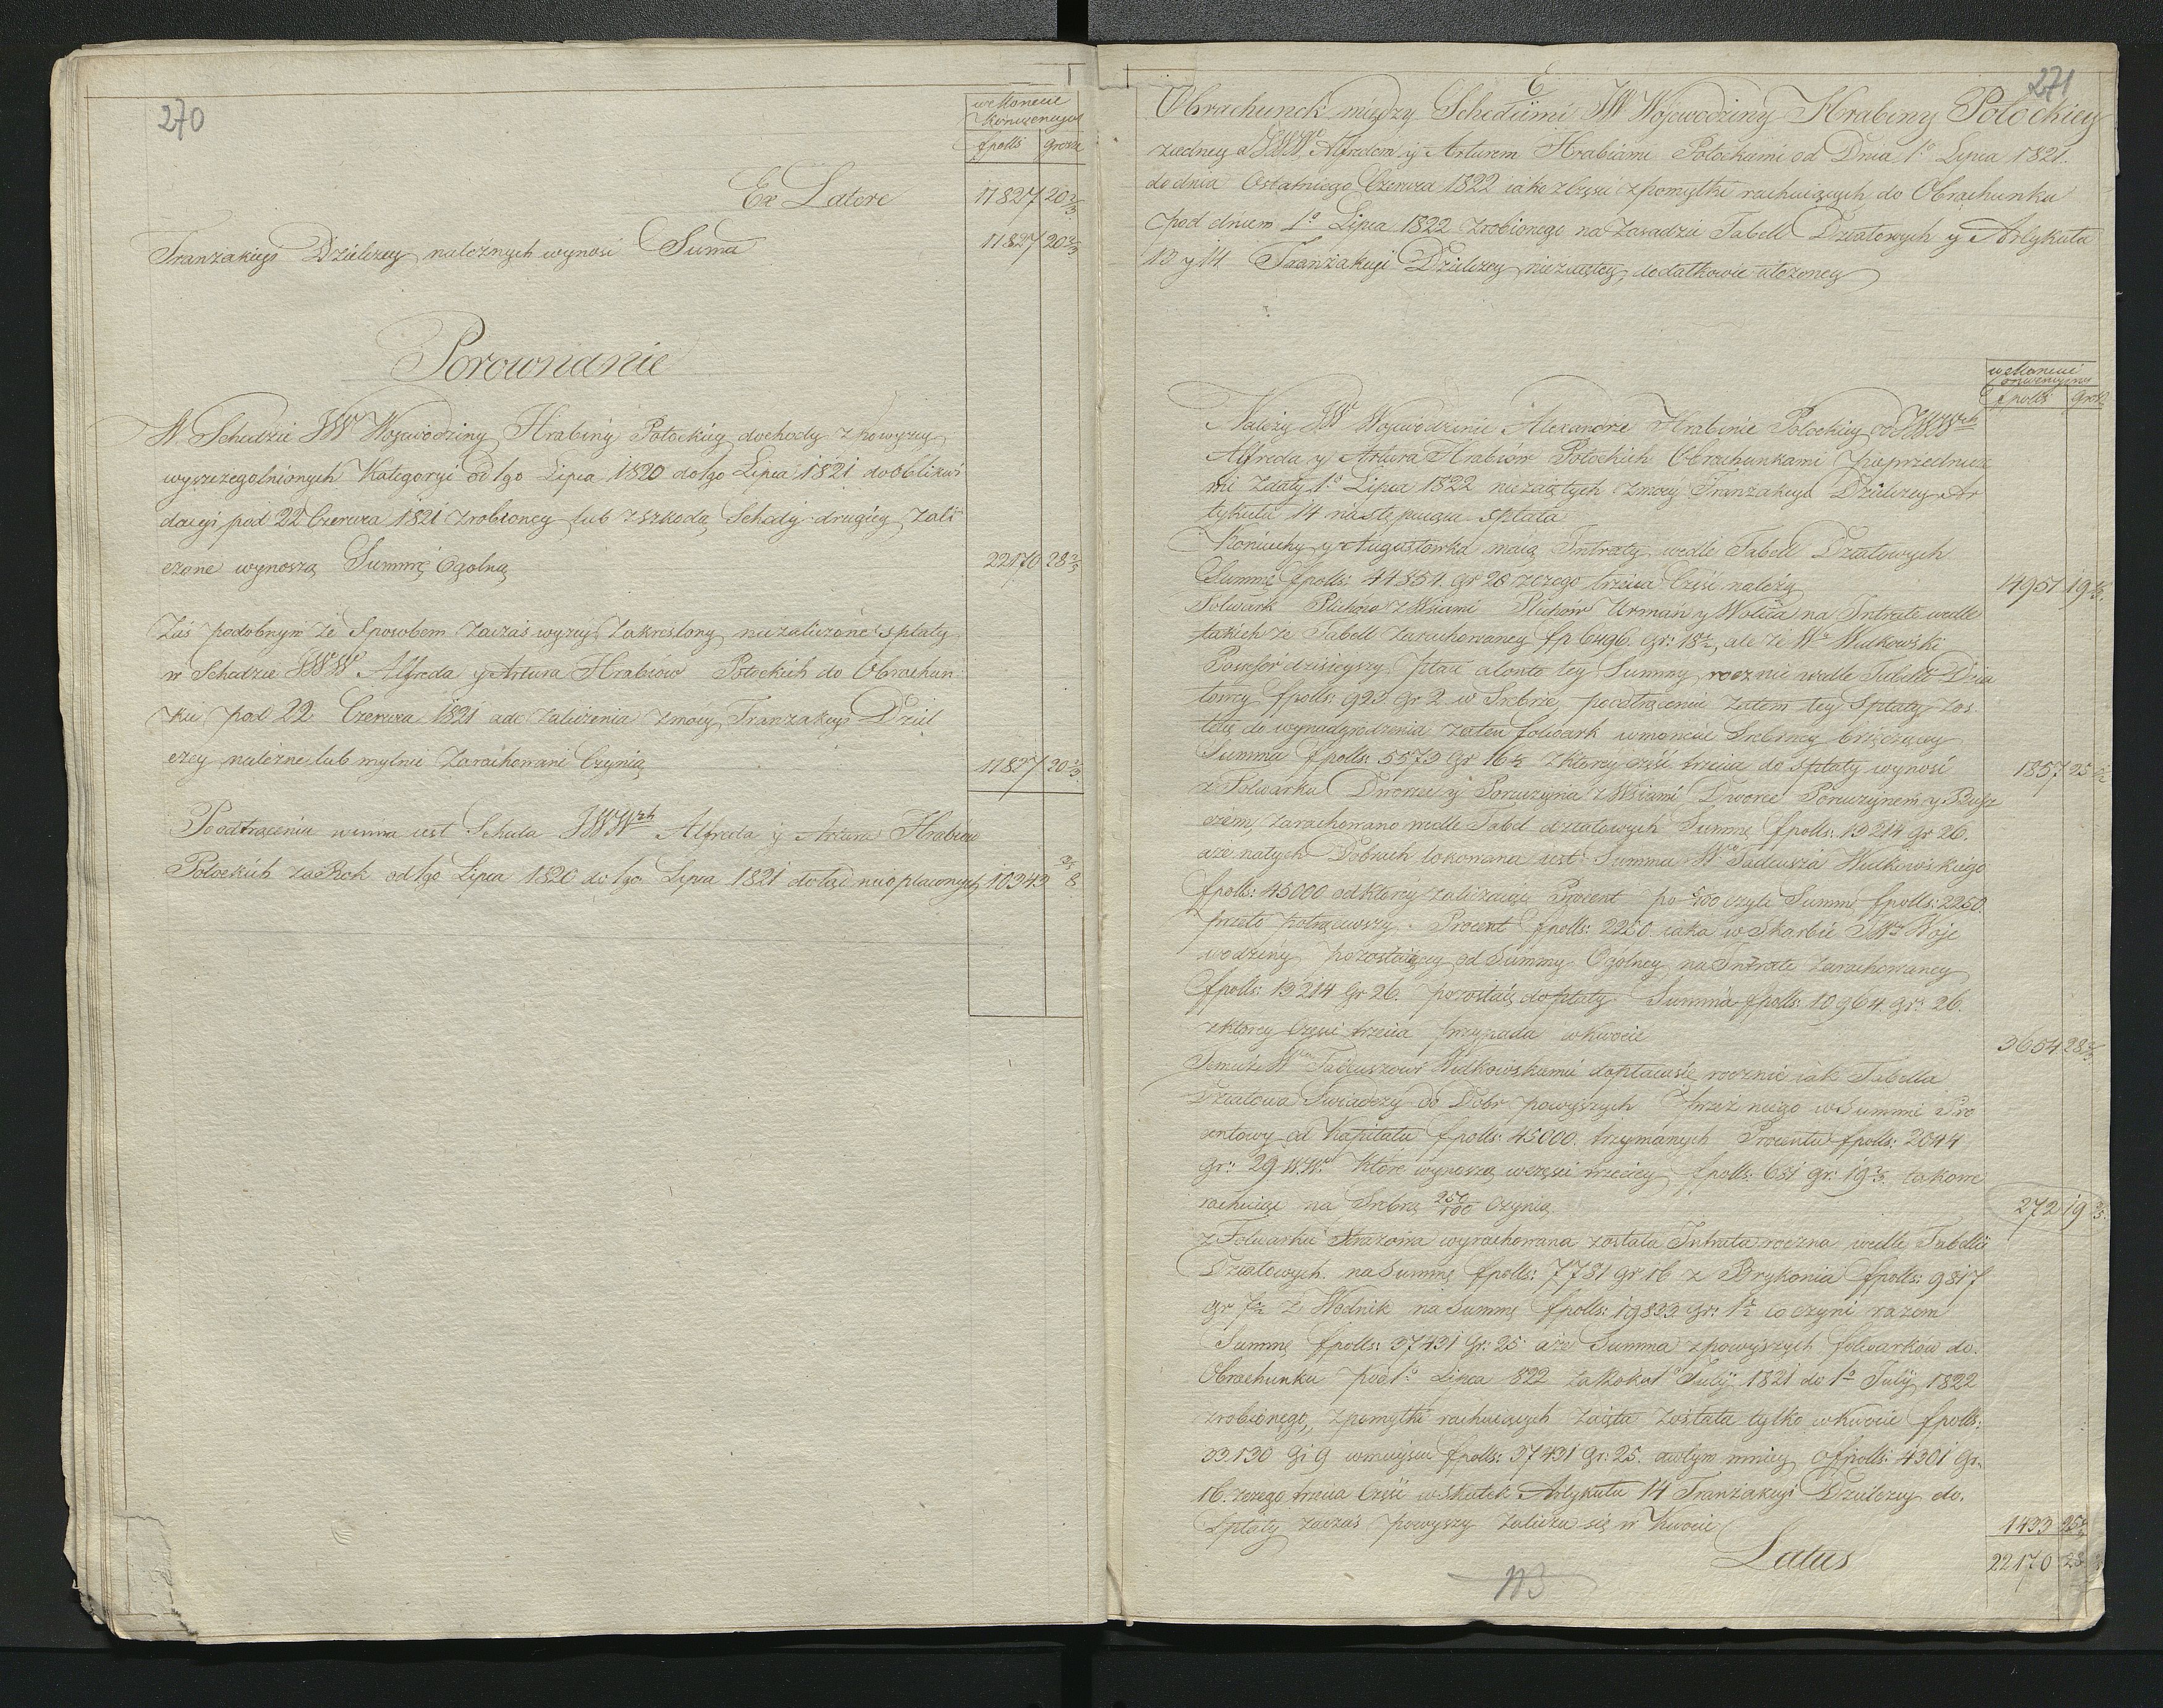 270
w Monecie
Konwencyi
fpolls grosze
Ex Latere 11827 20 2/3
Tranzakcyi Dzielczey należnych wynosi Suma 11827 20 2/3
Porownanie
W Schedzie JW Wojewodziny Hrabiny Potockiey dochody z powyzey
wyszczegolnionych Kategoryi od 1go Lipca 1820 do 1go Lipca 1821 do Oblikwi
dacyi pod 22 Czerwca 1821 zrobioney lub z szkodą Schedy drugiey zali
czone wynoszą Summę Ogolną 22170 28 2/3
Zaś podobnym że Sposobem zaczas wyzey zakreslony niezaliczone spłaty
w Schedzie JWW Alfreda y Artura Hrabiow Potockich do Obrachun
ku pod 22 Czerwca 1821 ade zaliczenia z mocy Tranzakcyi Dziel
czey należne lub mylnie zarachowani Czynią 11827 20 2/3
Po odtrąceniu winna iest Scheda JWWch Alfreda y Artura Hrabiow
Potockich za Rok od 1go Lipca 1820 do 1go Lipca 1821 dotąd nieopłaconych 10343 8
271
E
Obrachunek między Schedami JW Wojewodziny Hrabiny Potockiey
z iedney a JWW Alfredem y Arturem Hrabiami Potockiemi od Dnia 1o Lipca 1821
do dnia Ostatniego Czerwca 1822 iako z Części z pomyłki rachuiących do Obrachunku
pod dniem 1o Lipca 1822 zrobionego na Zasadzie Tabell Działowych y Artykułu
13 y 14 Tranzakcyi Dzielczey niezaiętey, dodatkowie ułożoney
w Monecie
Konwencyiney
fpolls grosz
Należy JW Wojewodzinie Alexandrze Hrabinie Potockiey od JWWch
Alfreda y Artura Hrabiów Potockich Obrachunkami poprzednicze
mi z daty 1o Lipca 1822 niezaiętych z mocy Tranzakcyi Dzielczey Ar
tykułu 14 następuiąca spłata
Koniuchy y Augustowka maią Intraty wedle Tabell Działowych
Summę fpolls: 44854 gr 28 z czego trzecia Część należy 14951 19 1/3
Folwark Plichow z Wsiami Plichów Urmań y Wolica na Intrate wedle
takich że Tabell zarachowaney fp 6496 gr: 18 1/2, ale że Wy Wilkowski
Possesor dzisieyszy płaci a konto tey Summy rocznie wedle Tabelli Dzia
łowey fpolls: 923 gr 2 w Srebrze, po odtrąceniu zatem tey Spłaty zos
taie do wynadgrodzenia zaten folwark w monecie Srebrney brzęczącey
Summa fpolls: 5573 gr 16 1/2 z ktorey część trzecia do spłaty wynosi 1857 25 1/2
z Folwarku Dworce y Poruczyna z Wsiami Dworce Poruczynem y Busz
czem, zarachowano wedle Tabel działowych Summę fpolls: 13214 gr 26.
a że natych Dobrach lokowana iest Summa Wgo Tadeusza Wilkowskiego
fpolls: 45000 od ktorey zaliczaiąc Procent po 5/100 czyli Summę fpolls: 2250.
przeto potrąciwszy Procent fpolls: 2250 iaka w Skarbie JWy Woje
wodziny pozostaiącey od Summy Ogolney na Intrate zarachowaney
fpolls: 13214 gr 26. pozostaie do płaty Summa fpolls: 10964 gr: 26.
z ktorey Części trzecia przypada w kwocie 3654 28 2/3
Temuż Wmu Tadeuszowi Wilkowskiemu dopłaca się rocznie iak Tabella
Działowa Swiadczy od Dobr powyższych przez niego w Summie Pro
centowey od Kapitału fpolls: 45000. trzymanych Procentu fpolls: 2044
gr: 29 W.W. które wynoszą w części trzeciey fpolls: 681 gr: 19 2/3. takowe
rachuiąc na Srebro 250/100 Czynią 272 19 2/3
z Folwarku Strazowa wyrachowana została Intrata roczna wedle Tabelli
Działowych na Summę fpolls: 7781 gr 16 z Brykonia fpolls: 9817
gr 7 1/2 z Wodnik na Summę fpolls: 19833 gr: 1 1/2 co czyni razem
Summę fpolls: 37431 Gr: 25 a że Summa z powyższych folwarków do
Obrachunku pod 1o Lipca 822 za Rok od 1o July 1821 do 1o July 1822
zrobionego, z pomyłki rachuiących zaięta została tylko w kwocie fpolls:
33.130 Gr 9 w mieysce fpolls: 37431 Gr: 25. a w tym mniey o fpolls: 4301 Gr.
16. z czego trzecia Część w skutek Artykułu 14 Tranzakcyi Dzielczey do
Spłaty zaczas powyższy zalicza się w kwocie 1433 25 1/3
Latus 22170 28